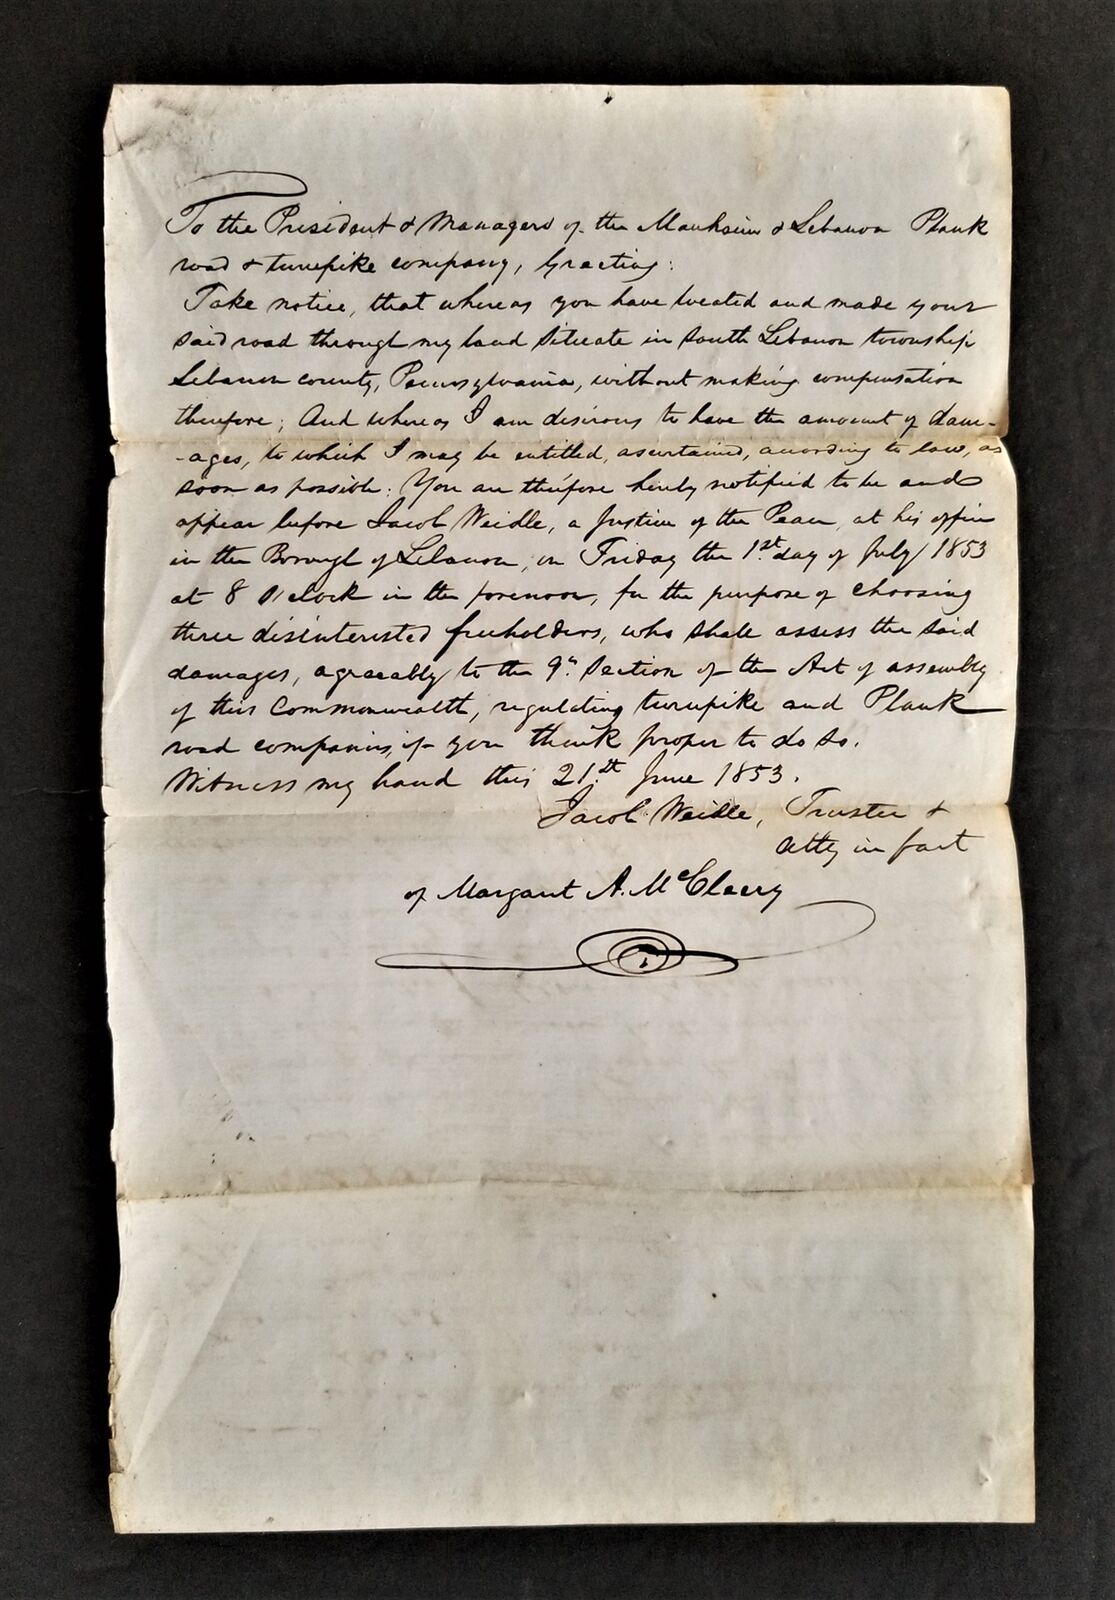 To the President & Managers of the Manheim & Lebanon Plank
road & turnpike company, Greeting:
Take notice, that whereas you have located and made your
said road through my land Situate in South Lebanon township
Lebanon county, Pennsylvania, without making compensation
therefore; And whereas I am desirous to have the amount of dam-
-ages, to which I may be entitled, ascertained, according to law, as
soon as possible: You are therefore hereby notified to be and
appear before Jacob Weidle, a Justice of the Peace, at his office
in the Borough of Lebanon, on Friday the 1st day of July 1853
at 8 O'clock in the forenoon, for the purpose of choosing
three disinterested freeholders, who shall assess the said
damages, agreeably to the 9th Section of the Act of assembly
of this Commonwealth, regulating turnpike and Plank
road companies, if you think proper to do so.
Witness my hand this 21st June 1853.
Jacob Weidle, Trustee &
atty in fact
of Margaret A. McCleery